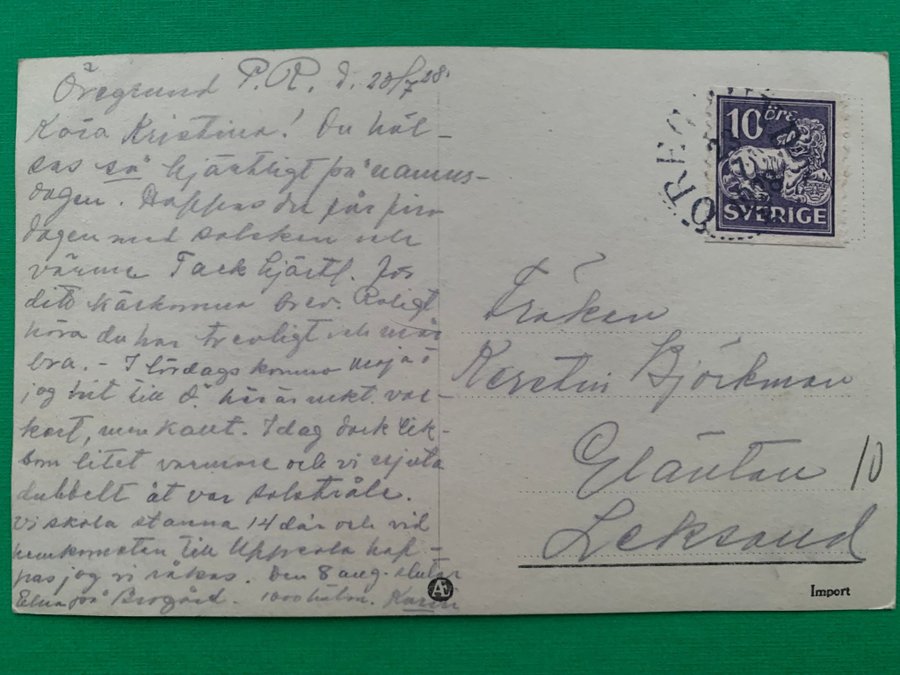 Öregrund P.R. d. 23/7 28.
Kära Kristina! Du häl-
sas så hjärtligt på namns-
dagen. Hoppas du får fira
dagen med solsken och
värme Tack hjärtl. för
ditt kärkomna brev. Roligt
höra du har trevligt och mår
bra. - I lördags kommo Maja o
jog hit till Ö. här är mkt. vac-
kert, men kallt. Idag dock lik-
som litet varmare och vi njuta
dubbelt åt var solstråle.
Vi skola stanna 14 dar och vid
hemkomsten till Uppsala hop-
pas jog vi råkas. Den 8 aug. slutar
Elna på Brogård. 1000 häls. Karin
ÖREG
10 öre
SVERIGE
Fröken
Kerstin Björkman
Gläntan
Leksand
10
Æ
Import